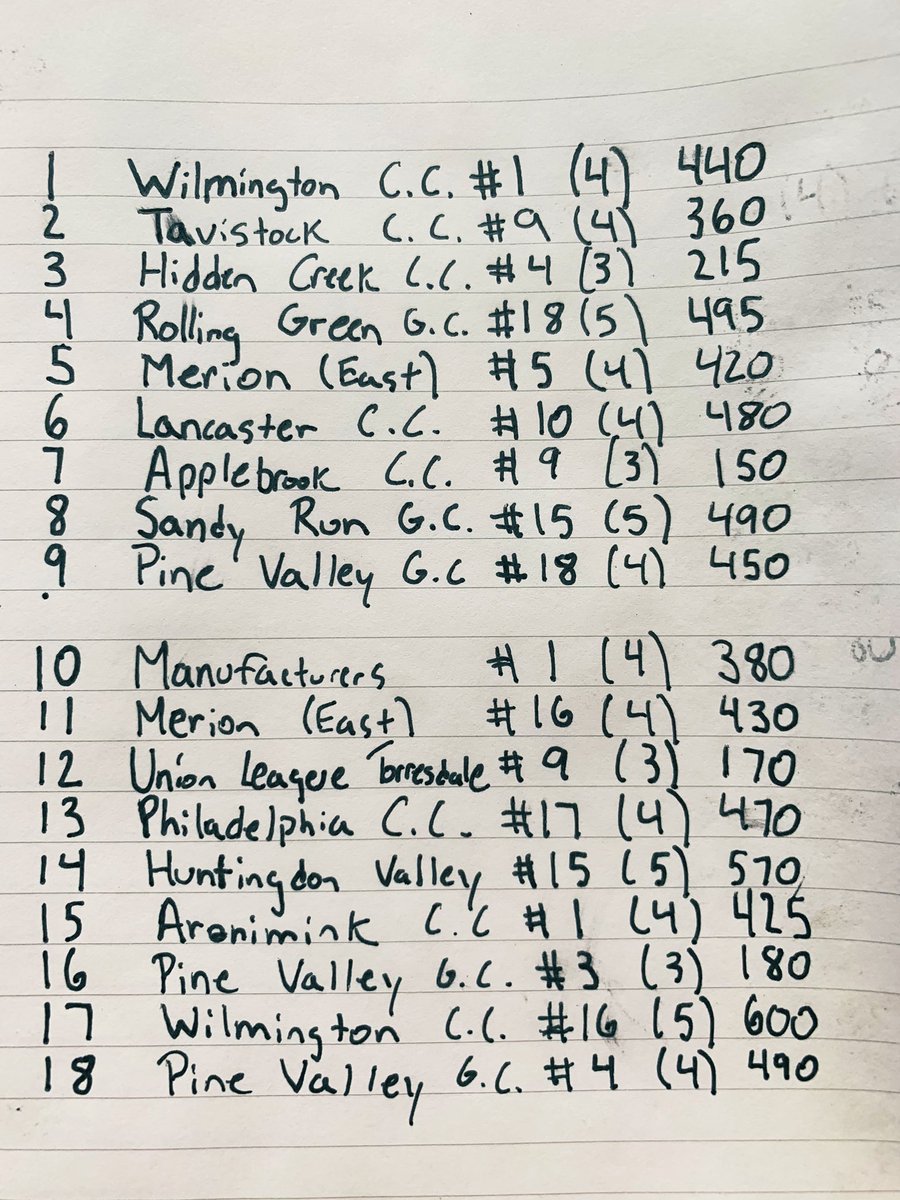 1 Wilmington C.C. #1 (4) 440
2 Tavistock C.C. #9 (4) 360
3 Hidden Creek C.C. #4 (3) 215
4 Rolling Green G.C. #18 (5) 495
5 Merion (East) #5 (4) 420
6 Lancaster C.C. #10 (4) 480
7 Applebrook C.C. #9 (3) 150
8 Sandy Run G.C. #15 (5) 490
9 Pine Valley G.C #18 (4) 450
10 Manufacturers #1 (4) 380
11 Merion (East) #16 (4) 430
12 Union League Torresdale #9 (3) 170
13 Philadelphia C.C. #17 (4) 470
14 Huntingdon Valley #15 (5) 570
15 Aronimink C.C #1 (4) 425
16 Pine Valley G.C. #3 (3) 180
17 Wilmington C.C. #16 (5) 600
18 Pine Valley G.C. #4 (4) 490